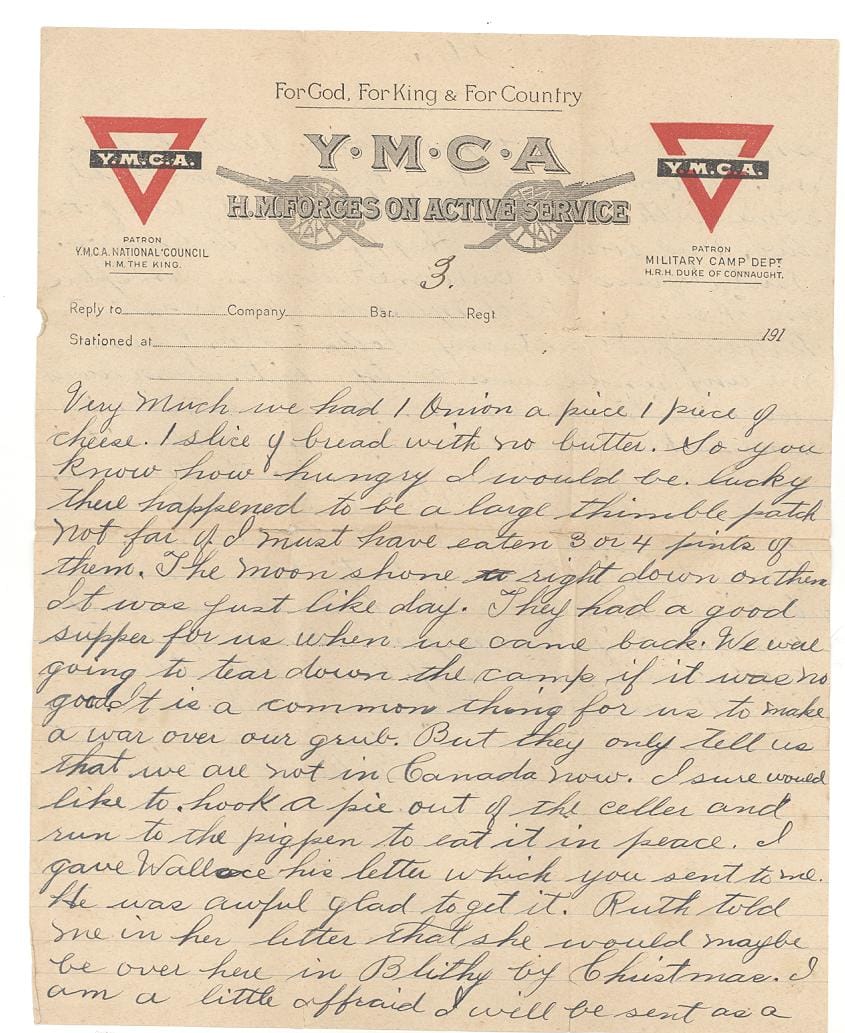 For God, For King & For Country
Y·M·C·A
H.M. FORCES ON ACTIVE SERVICE
Y.M.C.A.
PATRON
Y.M.C.A. NATIONAL COUNCIL
H.M. THE KING.
Y.M.C.A.
PATRON
MILITARY CAMP DEPT
H.R.H. DUKE OF CONNAUGHT.
3.
Reply to Company Bat. Regt
Stationed at 191
Very Much we had 1 Onion a piece 1 piece of
cheese. 1 slice of bread with no butter. So you
know how hungry I would be. lucky
there happened to be a large thimble patch
not far off I must have eaten 3 or 4 pints of
them. The moon shone right down on them
It was just like day. They had a good
supper for us when we came back. We were
going to tear down the camp if it was no
good. It is a common thing for us to make
a war over our grub. But they only tell us
that we are not in Canada now. I sure would
like to hook a pie out of the celler and
run to the pigpen to eat it in peace. I
gave Wallace his letter which you sent to me.
He was awful glad to get it. Ruth told
me in her letter that she would maybe
be over here in Blithy by Christmas. I
am a little affraid I will be sent as a